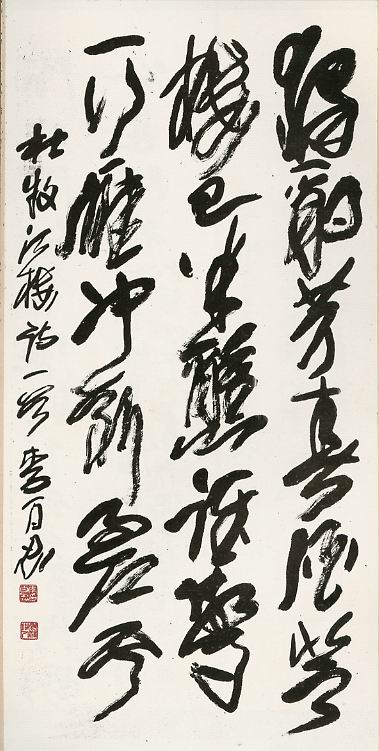 獨酌芳春酒登
樓已半醺誰驚
一行雁冲斷過江雲
杜牧江樓詩一首 李百忍